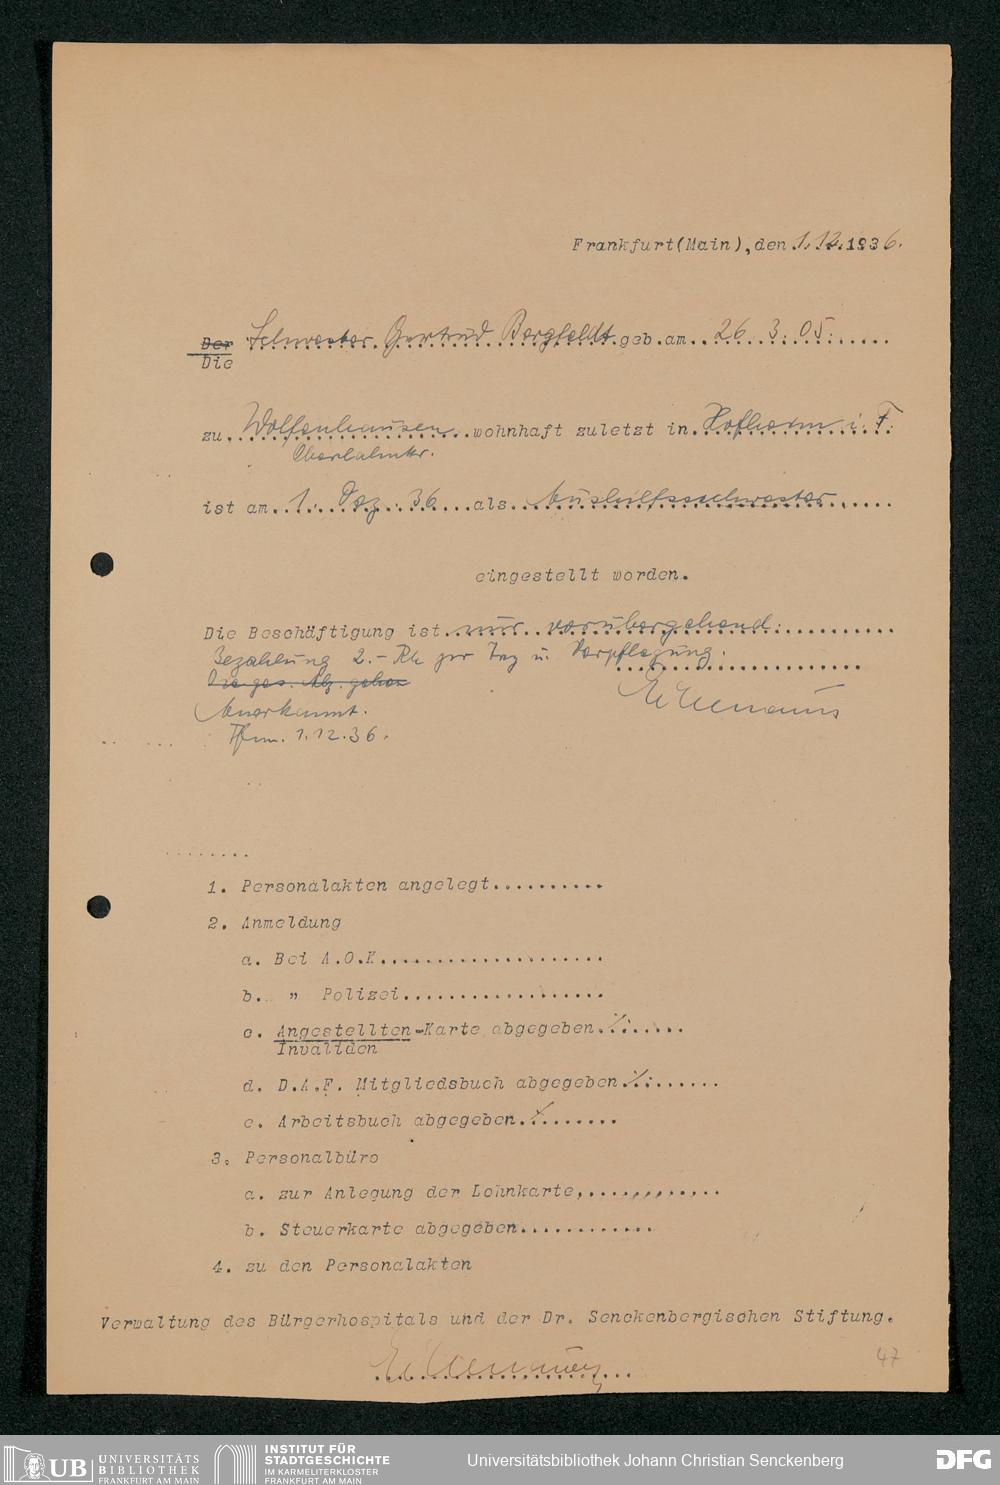 Frankfurt(Main),den 1.12.1936.
Der Schwester Gertrud Bergfeldt geb.am..26. 3. 05.
Die
zu Wolfenhausen wohnhaft zuletzt in Hofheim i. T.
Oberlahnkr.
ist am 1. Dez. 36 als Aushilfsschwester
eingestellt worden.
Die Beschäftigung ist nur vorübergehend.
Bezahlung 2.- Rh per Tag u. Verpflegung.
Anerkannt.
Ffm. 1.12.36.
1. Personalakten angelegt..........
2. Anmeldung
a. Bei A.O.K....................
b. " Polizei..................
c. Angestellten-Karte abgegeben........
Invaliden
d. D.A.F. Mitgliedsbuch abgegeben.........
e. Arbeitsbuch abgegeben.........
3. Personalbüro
a. zur Anlegung der Lohnkarte,............
b. Steuerkarte abgegeben............
4. zu den Personalakten
Verwaltung des Bürgerhospitals und der Dr. Senckenbergischen Stiftung.
47
UB UNIVERSITÄTS
BIBLIOTHEK
FRANKFURT AM MAIN
INSTITUT FÜR
STADTGESCHICHTE
IM KARMELITERKLOSTER
FRANKFURT AM MAIN
Universitätsbibliothek Johann Christian Senckenberg
DFG